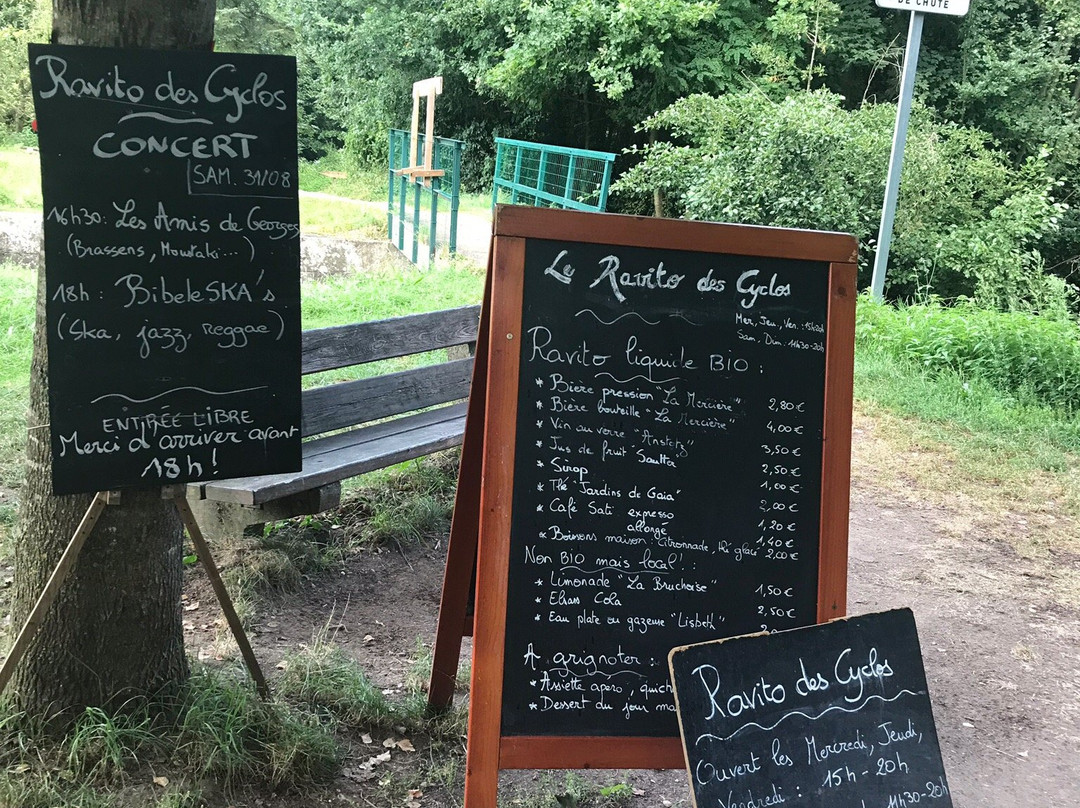 DE CHUTE
Ravito des Cyclos
CONCERT
SAM. 31/08
16h30: Les Amis de Georges
(Brassens, Moustaki...)
18h: BibeleSKA's
(Ska, jazz, reggae)
ENTRÉE LIBRE
Merci d'arriver avant
18h!
Le Ravito des Cyclos
Mer, Jeu, Ven: 15h-20h
Sam, Dim: 11h30-20h
Ravito liquide BIO:
* Bière pression "La Mercière" 2,80€
* Bière bouteille "La Mercière" 4,00€
* Vin au verre "Anstotz" 3,50€
* Jus de fruit "Sautter" 2,50€
* Sirop 1,00€
* Thé "Jardins de Gaia" 2,00€
* Café Sati expresso 1,20€
allongé 1,40€
* Boissons maison: citronnade, thé glacé 2,00€
Non BIO mais local!:
* Limonade "La Bruchoise" 1,50€
* Elsass Cola 2,50€
* Eau plate ou gazeuse "Lisbeth"
A grignoter:
* Assiette apéro, quich
* Dessert du jour ma
Ravito des Cyclos
Ouvert les Mercredi, Jeudi,
Vendredi: 15h-20h
11h30-20h